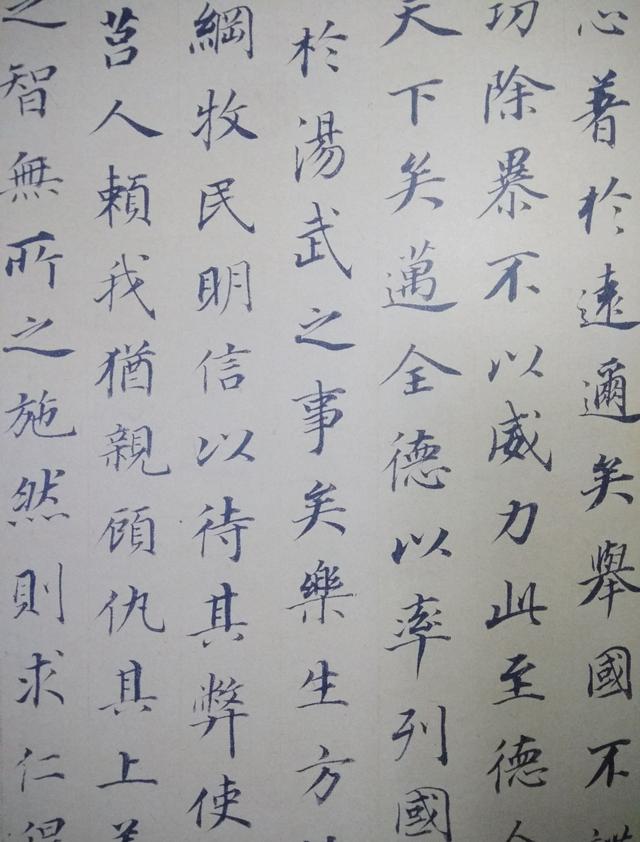 心著於遠邇矣舉國不
功除暴不以威力此至德
天下矣邁全德以率列國
於湯武之事矣樂生方
綱牧民明信以待其弊使
莒人頼我猶親顧仇其上
之智無所之施然則求仁得